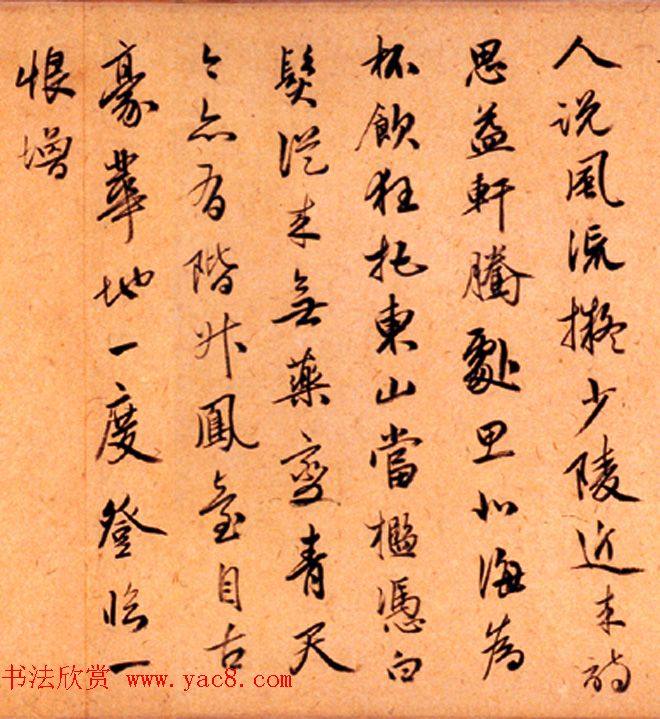 人说風流擬少陵近来詩
思益軒騰北海為
杯飲狂把東山當檻憑白
髮從来無藥變青天
今亦有階升鳳臺自古
豪華地一度登臨一
恨增
书法欣赏 www.yac8.com